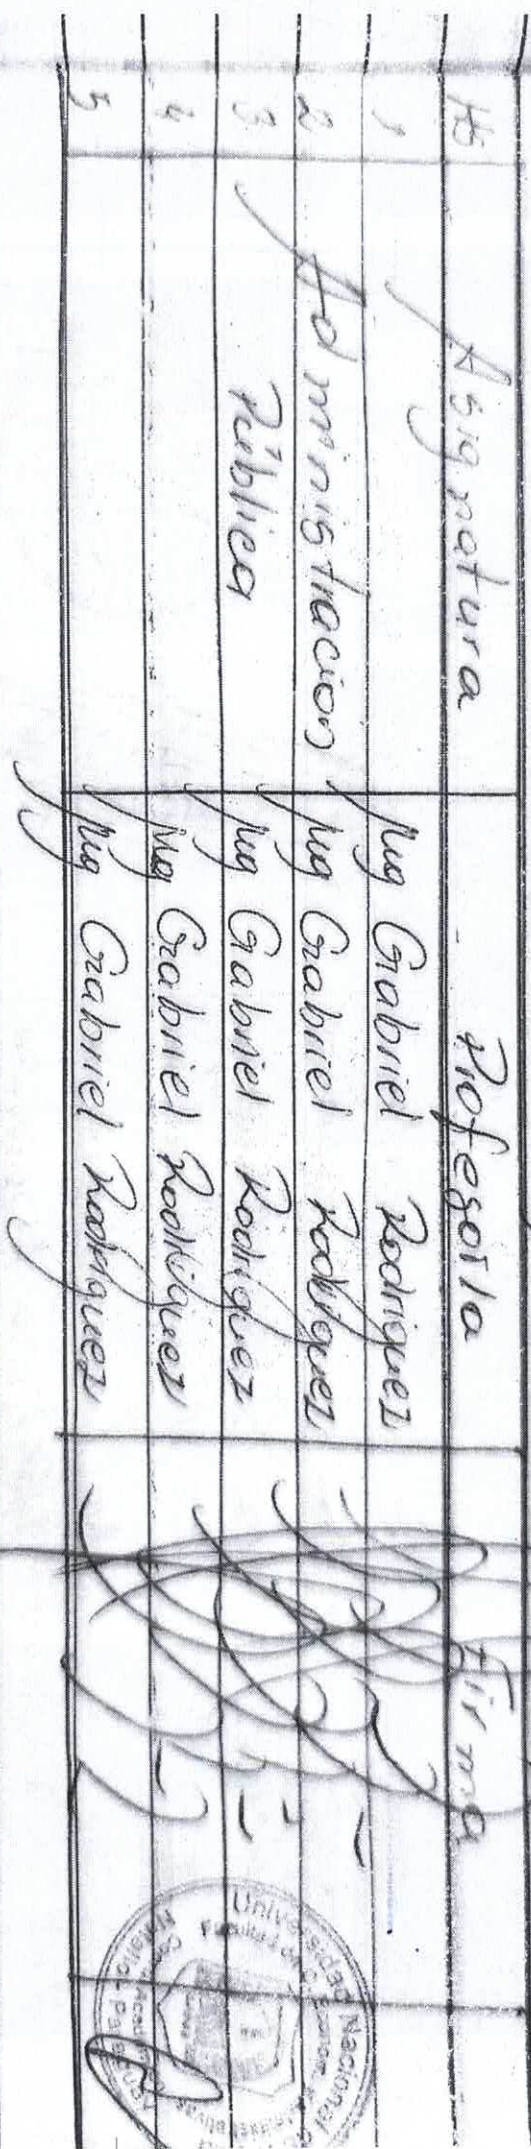 Hs Asignatura Profesor/a Firma
1 Mg Gabriel Rodriguez
2 Administracion Mg Gabriel Rodriguez
3 Pública Mg Gabriel Rodriguez
4 Mg Gabriel Rodriguez
5 Mg Gabriel Rodriguez
Universidad Nacional
Facultad de